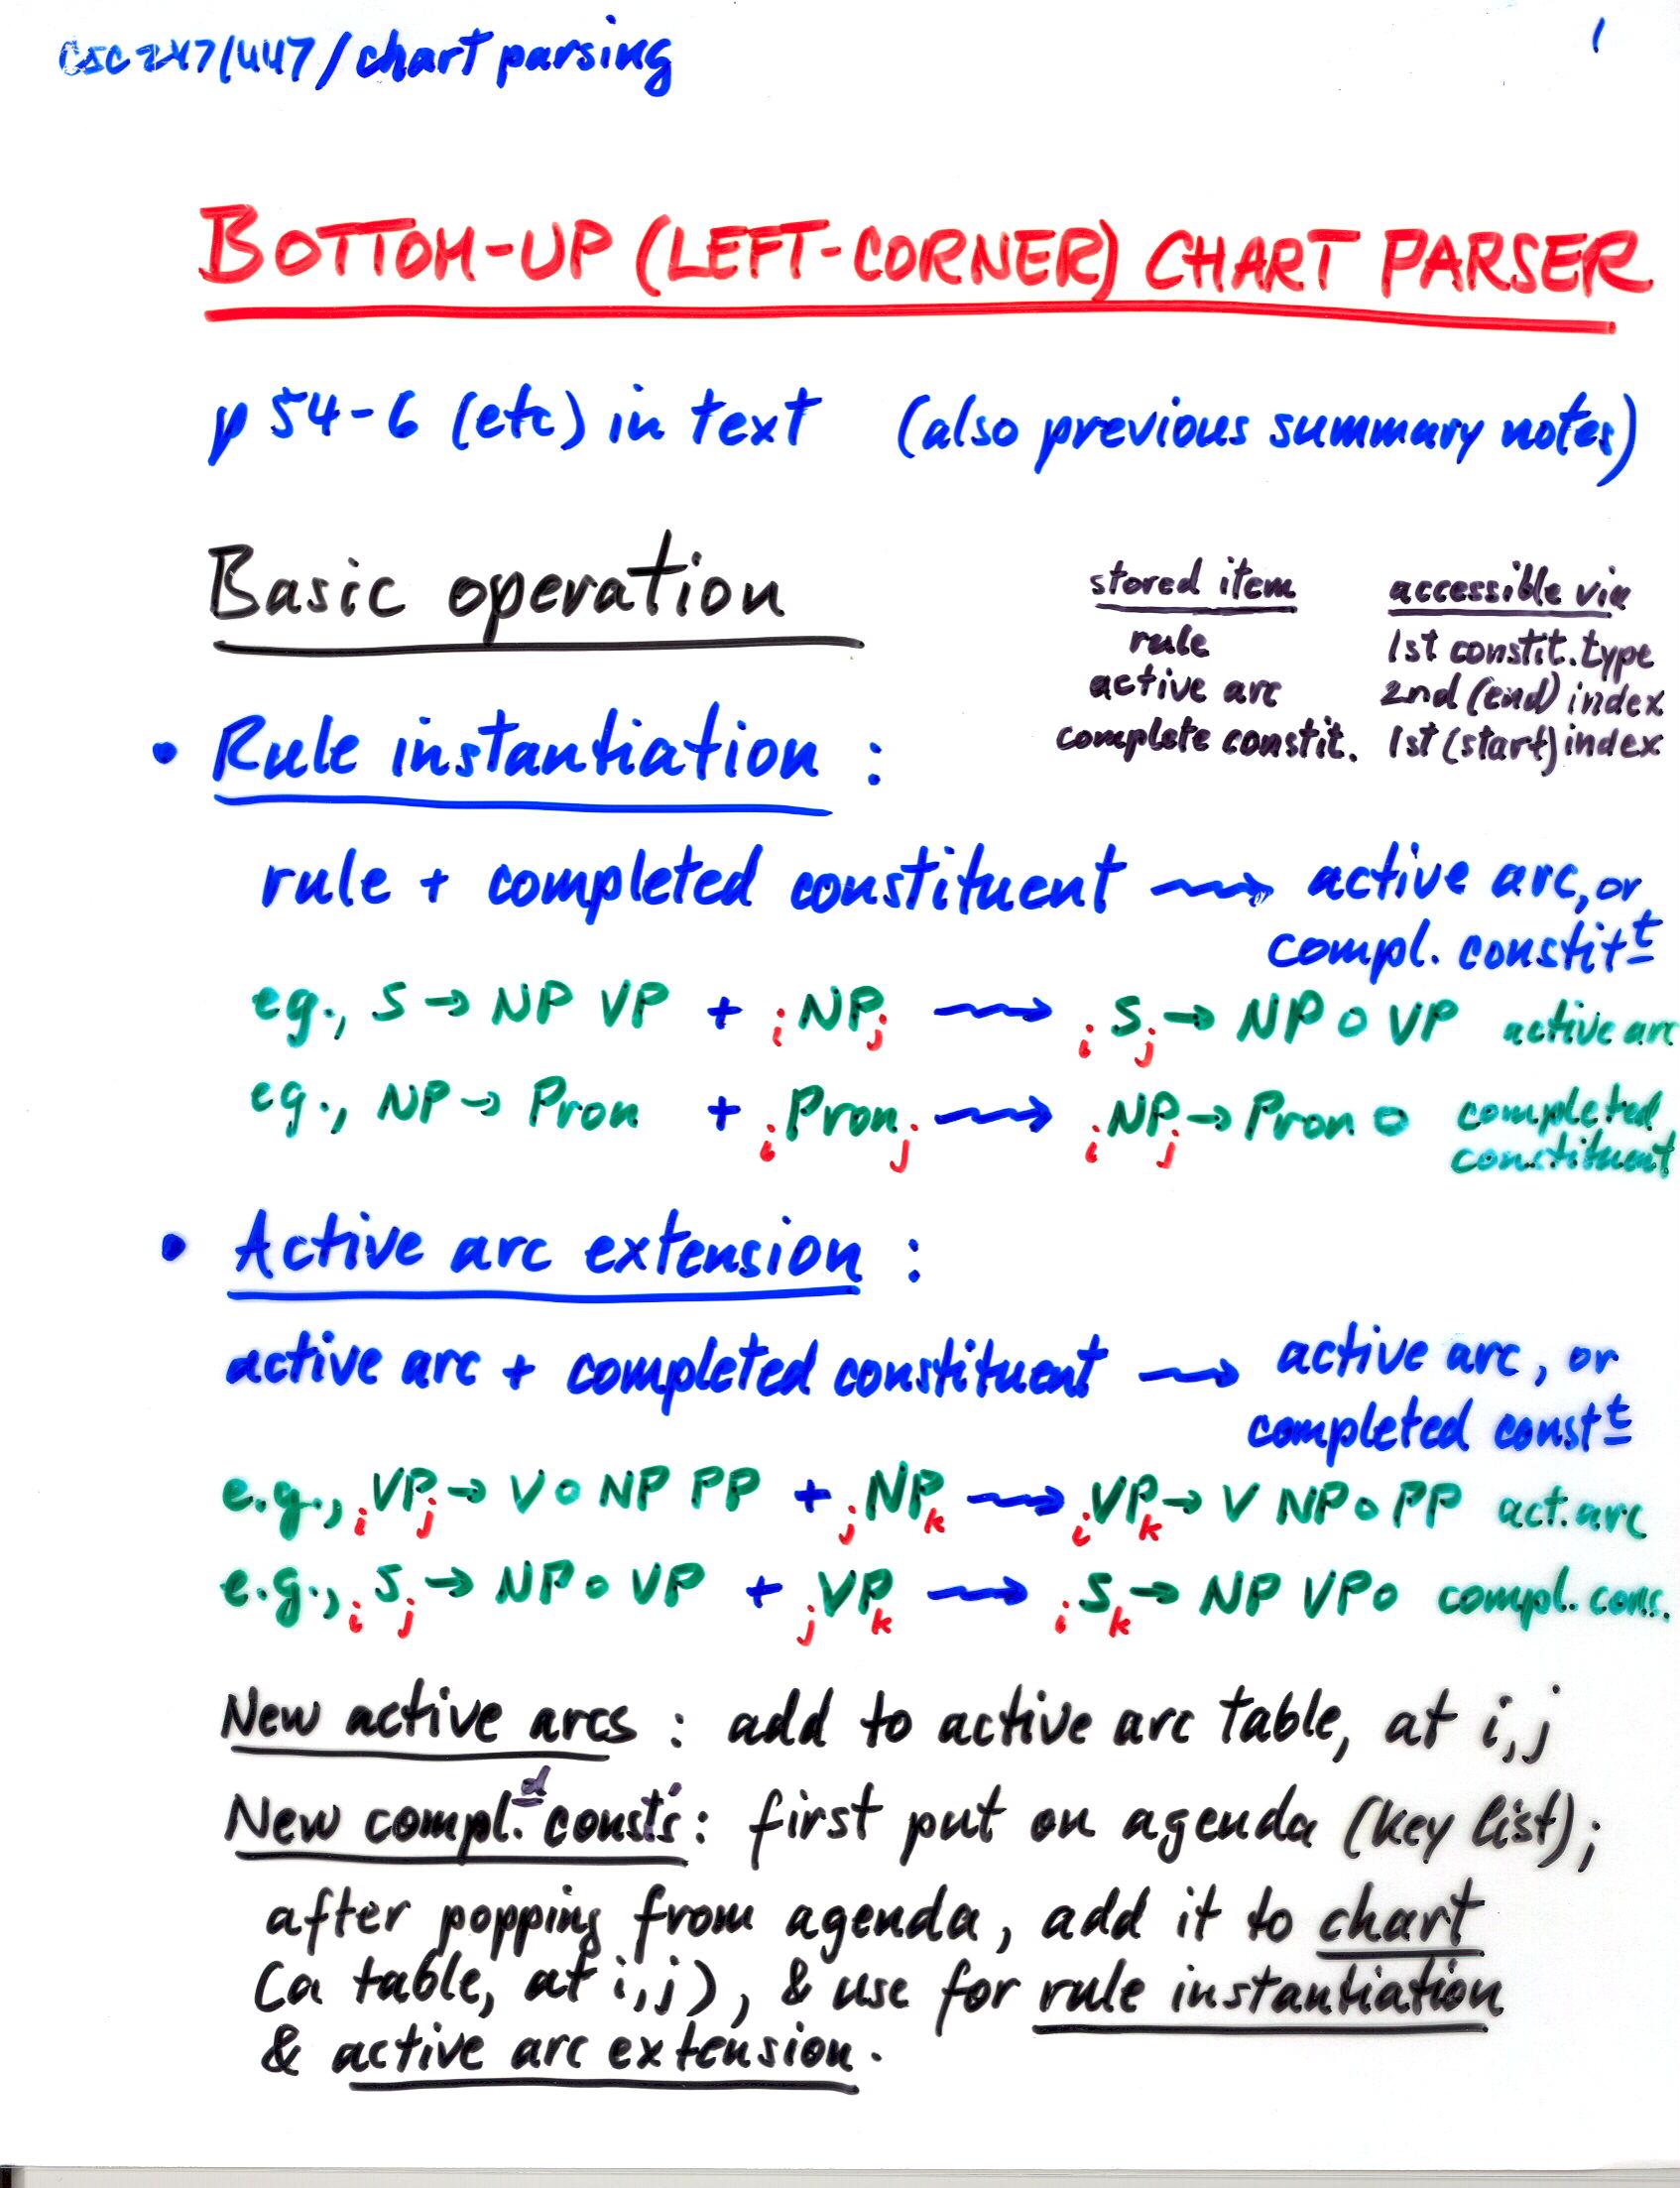 csc 247/447/chart parsing 1
BOTTOM-UP (LEFT-CORNER) CHART PARSER
p 54-6 (etc) in text (also previous summary notes)
Basic operation
stored item accessible via
rule 1st constit. type
active arc 2nd (end) index
complete constit. 1st (start) index
• Rule instantiation :
rule + completed constituent ⇝ active arc, or
compl. constitᵗ
eg., S → NP VP + ᵢNPⱼ ⇝ ᵢSⱼ → NP o VP active arc
eg., NP → Pron + ᵢPronⱼ ⇝ ᵢNPⱼ → Pron o completed
constituent
• Active arc extension :
active arc + completed constituent ⇝ active arc, or
completed constᵗ
e.g., ᵢVPⱼ → V o NP PP + ⱼNPₖ ⇝ ᵢVPₖ → V NP o PP act. arc
e.g., ᵢSⱼ → NP o VP + ⱼVPₖ ⇝ ᵢSₖ → NP VP o compl. cons.
New active arcs : add to active arc table, at i,j
New compl.ᵈ const's : first put on agenda (key list);
after popping from agenda, add it to chart
(a table, at i,j), & use for rule instantiation
& active arc extension.